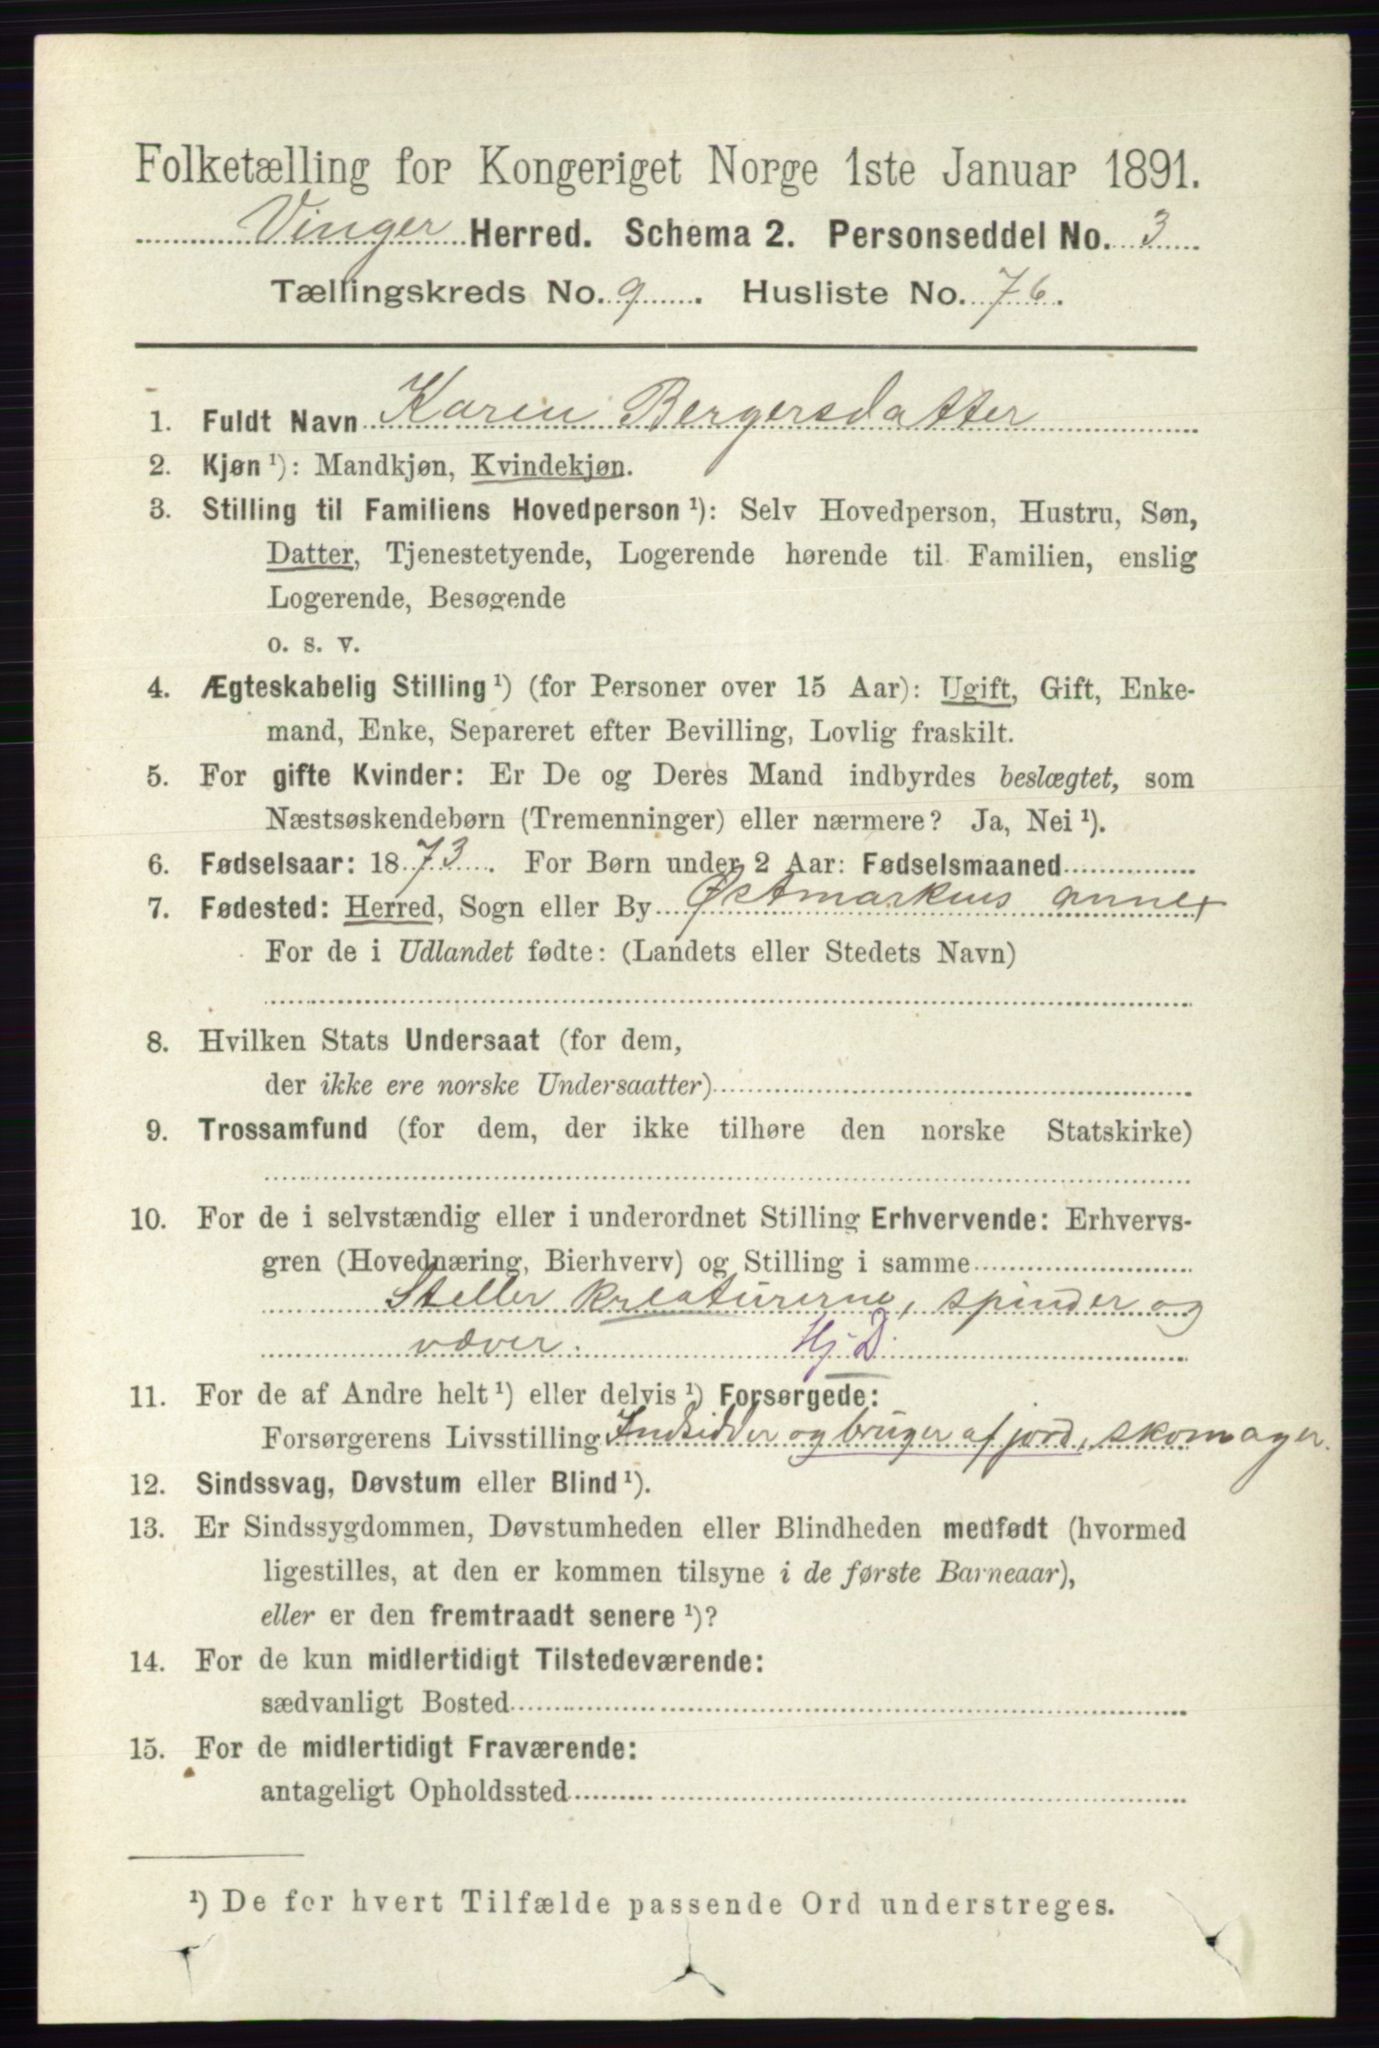 Folketælling for Kongeriget Norge 1ste Januar 1891.
Vinger Herred. Schema 2. Personseddel No. 3
Tællingskreds No. 9. Husliste No. 76.
1. Fuldt Navn Karen Bergersdatter
2. Kjøn¹): Mandkjøn, Kvindekjøn.
3. Stilling til Familiens Hovedperson¹): Selv Hovedperson, Hustru, Søn,
Datter, Tjenestetyende, Logerende hørende til Familien, enslig
Logerende, Besøgende
o. s. v.
4. Ægteskabelig Stilling¹) (for Personer over 15 Aar): Ugift, Gift, Enke-
mand, Enke, Separeret efter Bevilling, Lovlig fraskilt.
5. For gifte Kvinder: Er De og Deres Mand indbyrdes beslægtet, som
Næstsøskendebørn (Tremenninger) eller nærmere? Ja, Nei¹).
6. Fødselsaar: 1873. For Børn under 2 Aar: Fødselsmaaned
7. Fødested: Herred, Sogn eller By Østmarkens annex
For de i Udlandet fødte: (Landets eller Stedets Navn)
8. Hvilken Stats Undersaat (for dem,
der ikke ere norske Undersaatter)
9. Trossamfund (for dem, der ikke tilhøre den norske Statskirke)
10. For de i selvstændig eller i underordnet Stilling Erhvervende: Erhvervs-
gren (Hovednæring, Bierhverv) og Stilling i samme
Steller kreaturerne, spinder og
væver. Hj D.
11. For de af Andre helt¹) eller delvis¹) Forsørgede:
Forsørgerens Livsstilling Indsidder og bruger af jord, skomager.
12. Sindssvag, Døvstum eller Blind¹).
13. Er Sindssygdommen, Døvstumheden eller Blindheden medfødt (hvormed
ligestilles, at den er kommen tilsyne i de første Barneaar),
eller er den fremtraadt senere¹)?
14. For de kun midlertidigt Tilstedeværende:
sædvanligt Bosted
15. For de midlertidigt Fraværende:
antageligt Opholdssted
¹) De for hvert Tilfælde passende Ord understreges.